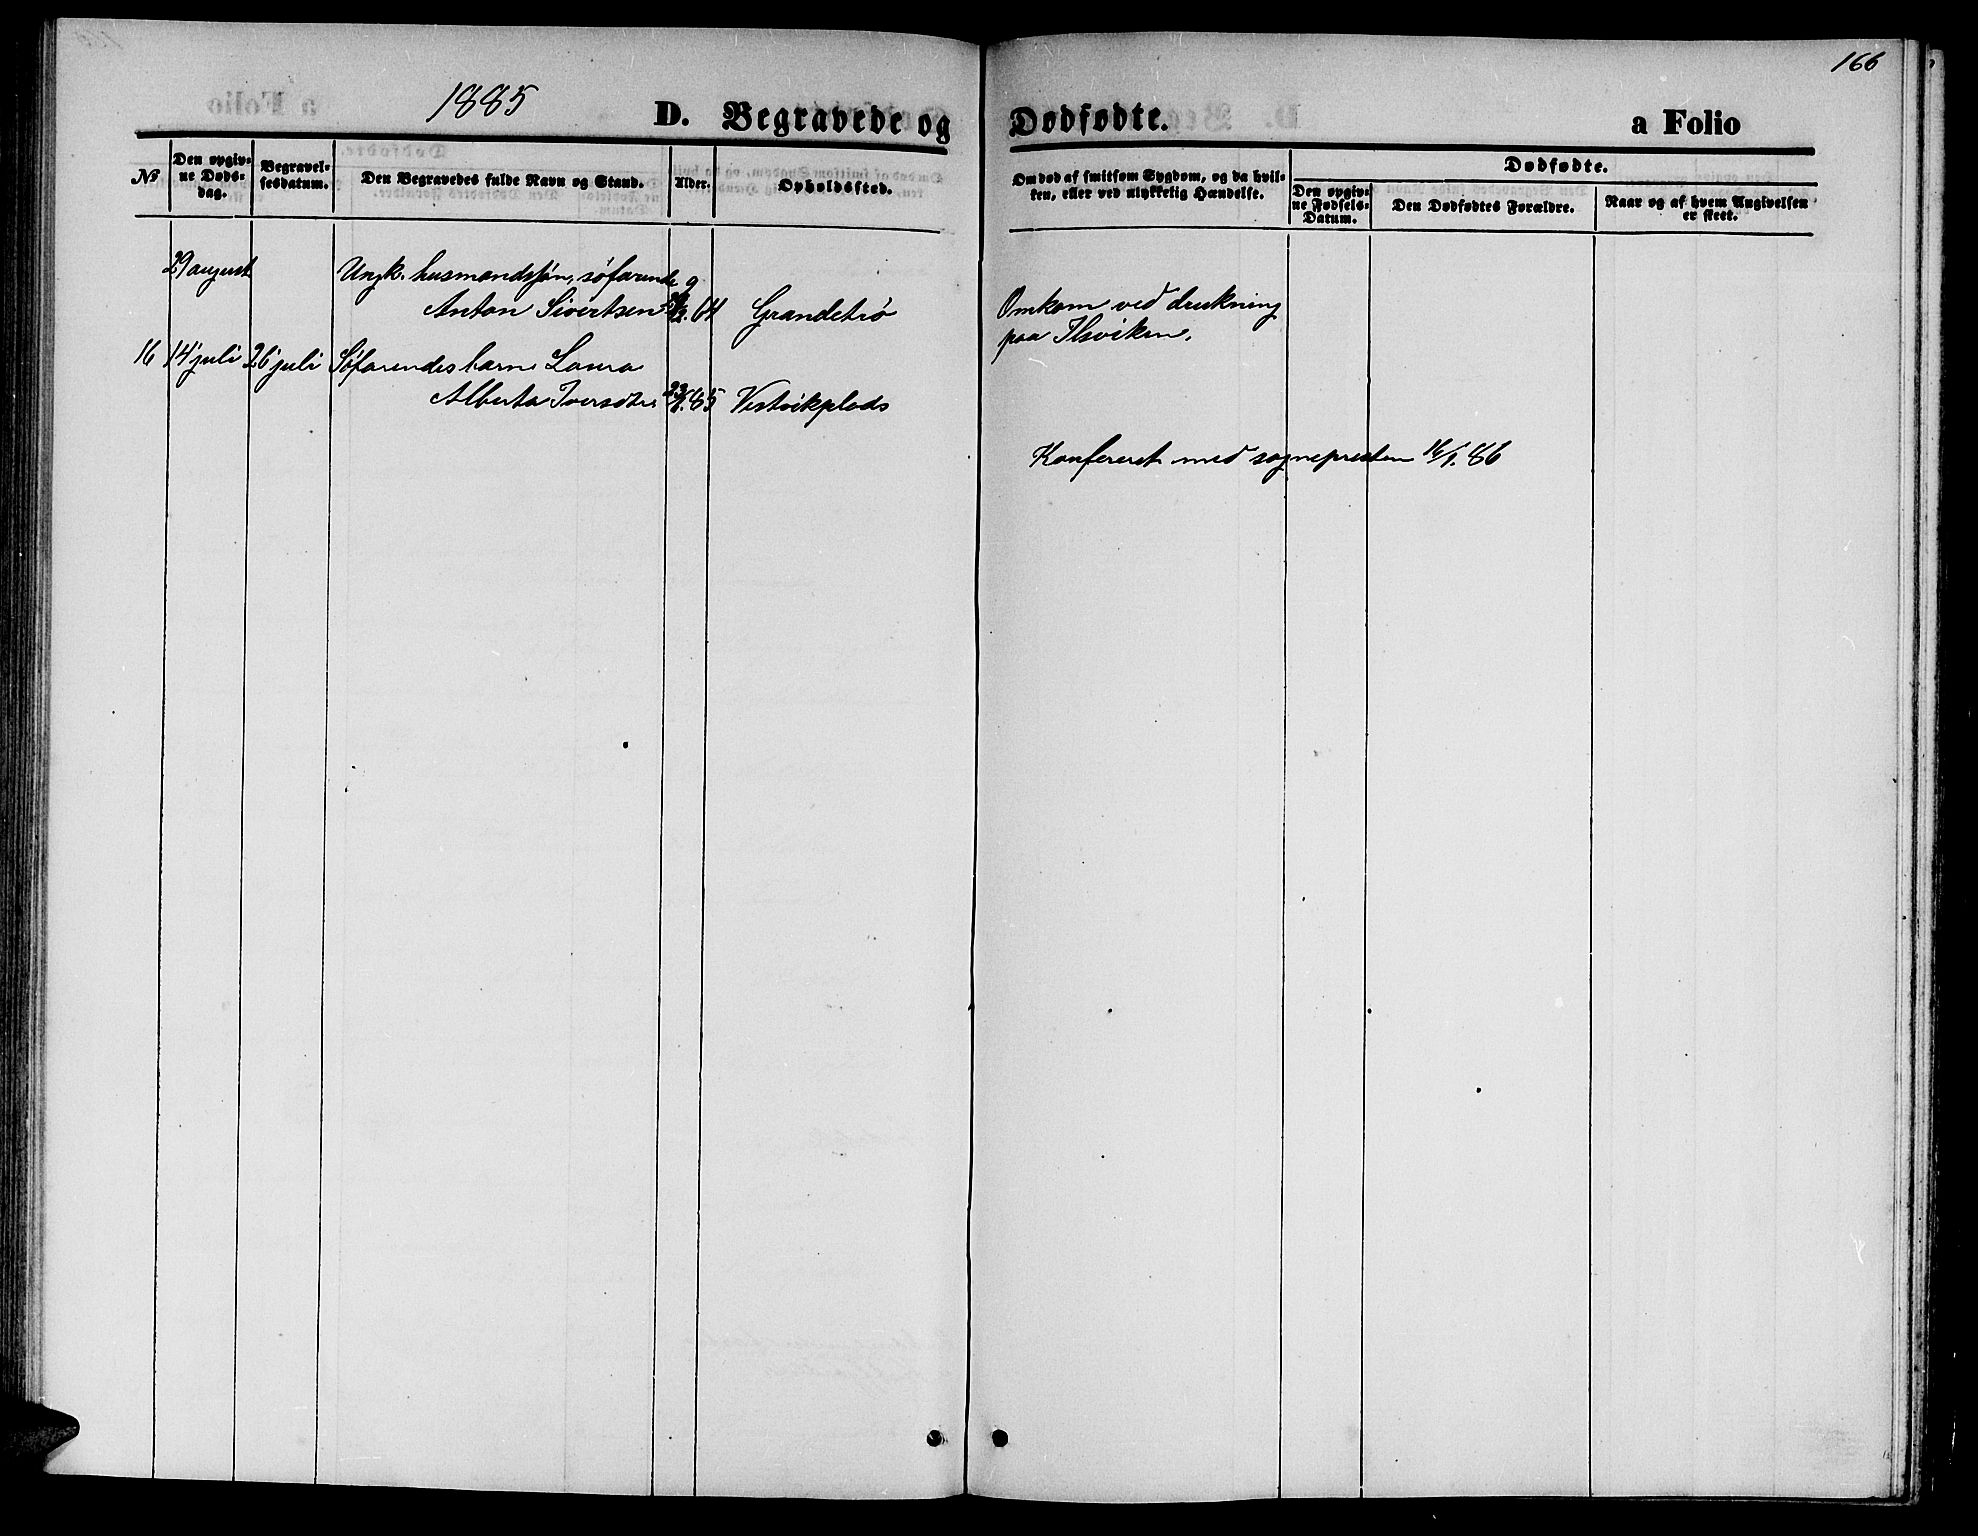 166
1885 D. Begravede og Dødfødte. a Folio
No
Den opgiv-
ne Døds-
dag.
Begravel-
sesdatum.
Den Begravedes fulde Navn og Stand.
Alder.
Opholdssted.
Om død af smitsom Sygdom, og da hvil-
ken, eller ved ulykkelig Hændelse.
Dødfødte.
Den opgiv-
ne Fødsels-
Datum.
Den Dødfødtes Forældre.
Naar og af hvem Angivelsen
er skeet.
29 august Ungk. husmandssøn, søfarende
Anton Sivertsen 64 Grandetrø
Omkom ved drukning
paa Ilsviken.
16 14 juli 26 juli Søfarendes barn Laura
Alberta Iversdtr 85 Vestvikplads
Konfereret med sognepresten 16/1.86